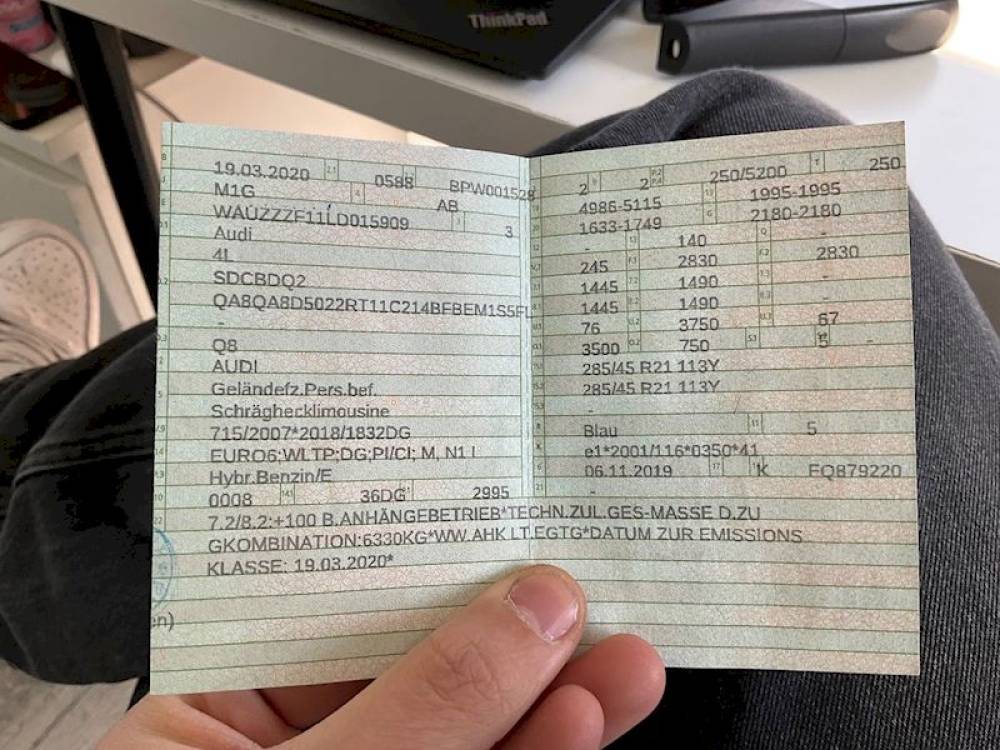 ThinkPad
19.03.2020 2.1 0588 BPW001528
M1G AB
WAUZZZF11LD015909 3
Audi
4L
SDCBDQ2
QA8QA8D5022RT11C214BFBEM1S5FL
-
Q8
AUDI
Geländefz.Pers.bef.
Schräghecklimousine
715/2007*2018/1832DG
EURO6;WLTP;DG;PI/CI; M, N1 I
Hybr.Benzin/E
0008 14.1 36DG 2995
2 2 P.2 P.4 250/5200 T 250
4986-5115 1995-1995
1633-1749 G 2180-2180
- 140 Q -
245 2830 2830
1445 1490 -
1445 1490 -
76 3750 67
3500 750 -
285/45 R21 113Y
285/45 R21 113Y
-
Blau 11 5
e1*2001/116*0350*41
06.11.2019 17 K FQ879220
-
7.2/8.2:+100 B.ANHÄNGEBETRIEB*TECHN.ZUL.GES-MASSE D.ZU
GKOMBINATION:6330KG*WW.AHK LT.EGTG*DATUM ZUR EMISSIONS
KLASSE: 19.03.2020*
en)